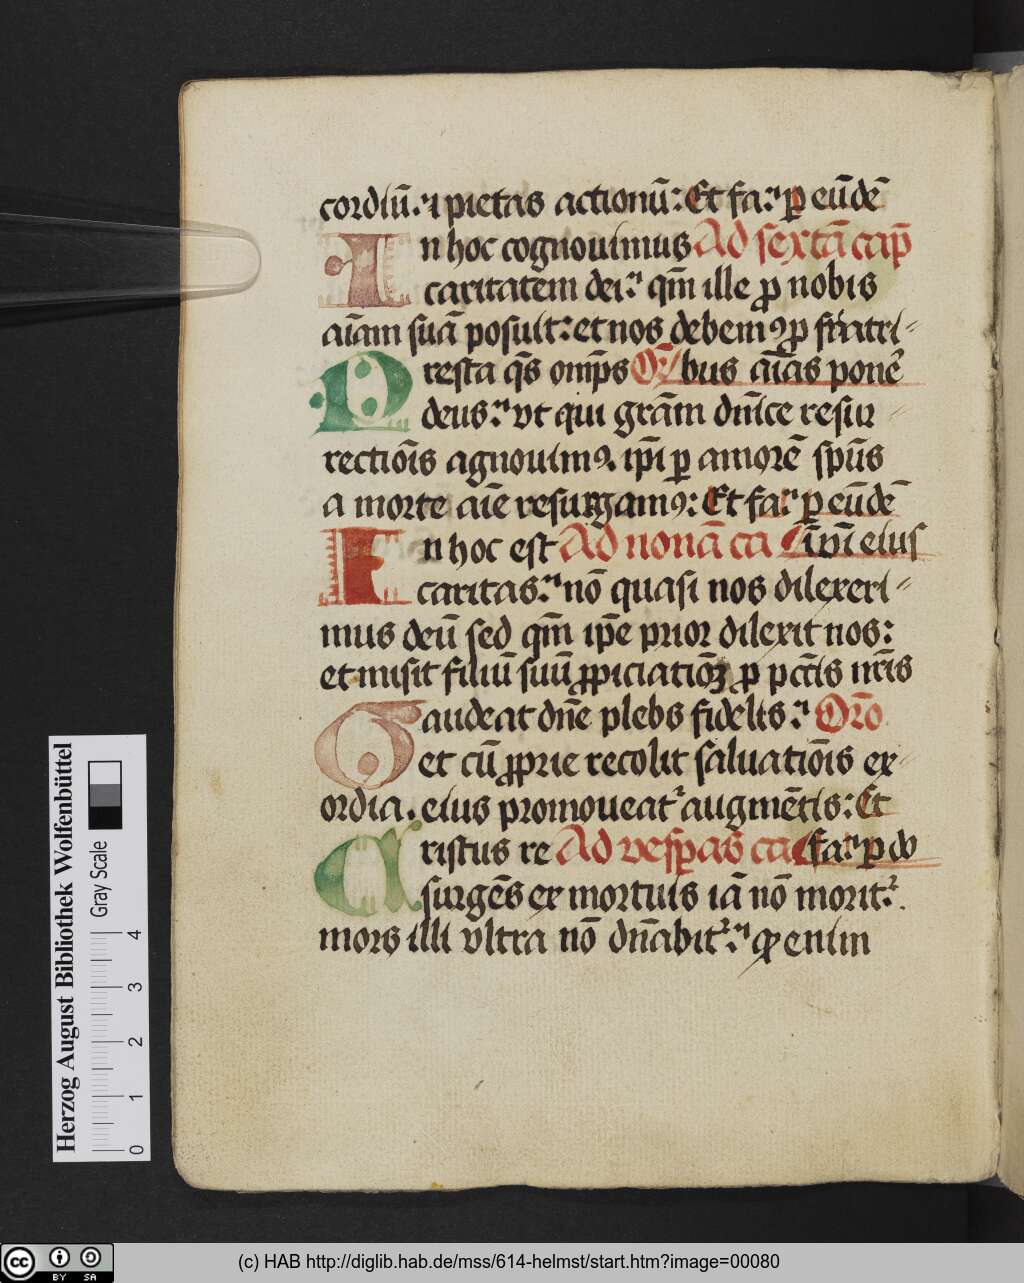 cordiū: ⁊ pietas actionū: Et fa: ꝑ eūdē
In hoc cognouimus Ad sextā cap̄
caritatem dei: qm̄ ille ꝓ nobis
aīam suā posuit: et nos debemꝯ ꝓ fratri-
Presta q̄s omp̄s Or̄ bus aīas ponē
deus: vt qui gr̄am dn̄ice resur
rectiōis agnouimꝯ. ip̄i ꝑ amorē sp̄us
a morte aīe resurgamꝯ: Et fa: ꝑ eūdē
In hoc est Ad nonā ca
caritas: nō quasi nos dilexeri-
mus deū sed qm̄ ip̄e prior dilexit nos:
et misit filiū suū ꝓpiciatiōꝫ ꝓ pct̄is nr̄is
Gaudeat dn̄e plebs fidelis: Oro
et cū ꝓprie recolit saluatiōis ex-
ordia. eius promoueat᷑ augmētis: Et
Cristus re Ad vesꝑas ca fa: ꝑ do
surgēs ex mortuis iā nō morit᷑.
mors illi vltra nō dn̄abit᷑: qͥ enim
Herzog August Bibliothek Wolfenbüttel
Gray Scale
0 1 2 3 4
cc BY SA
(c) HAB http://diglib.hab.de/mss/614-helmst/start.htm?image=00080